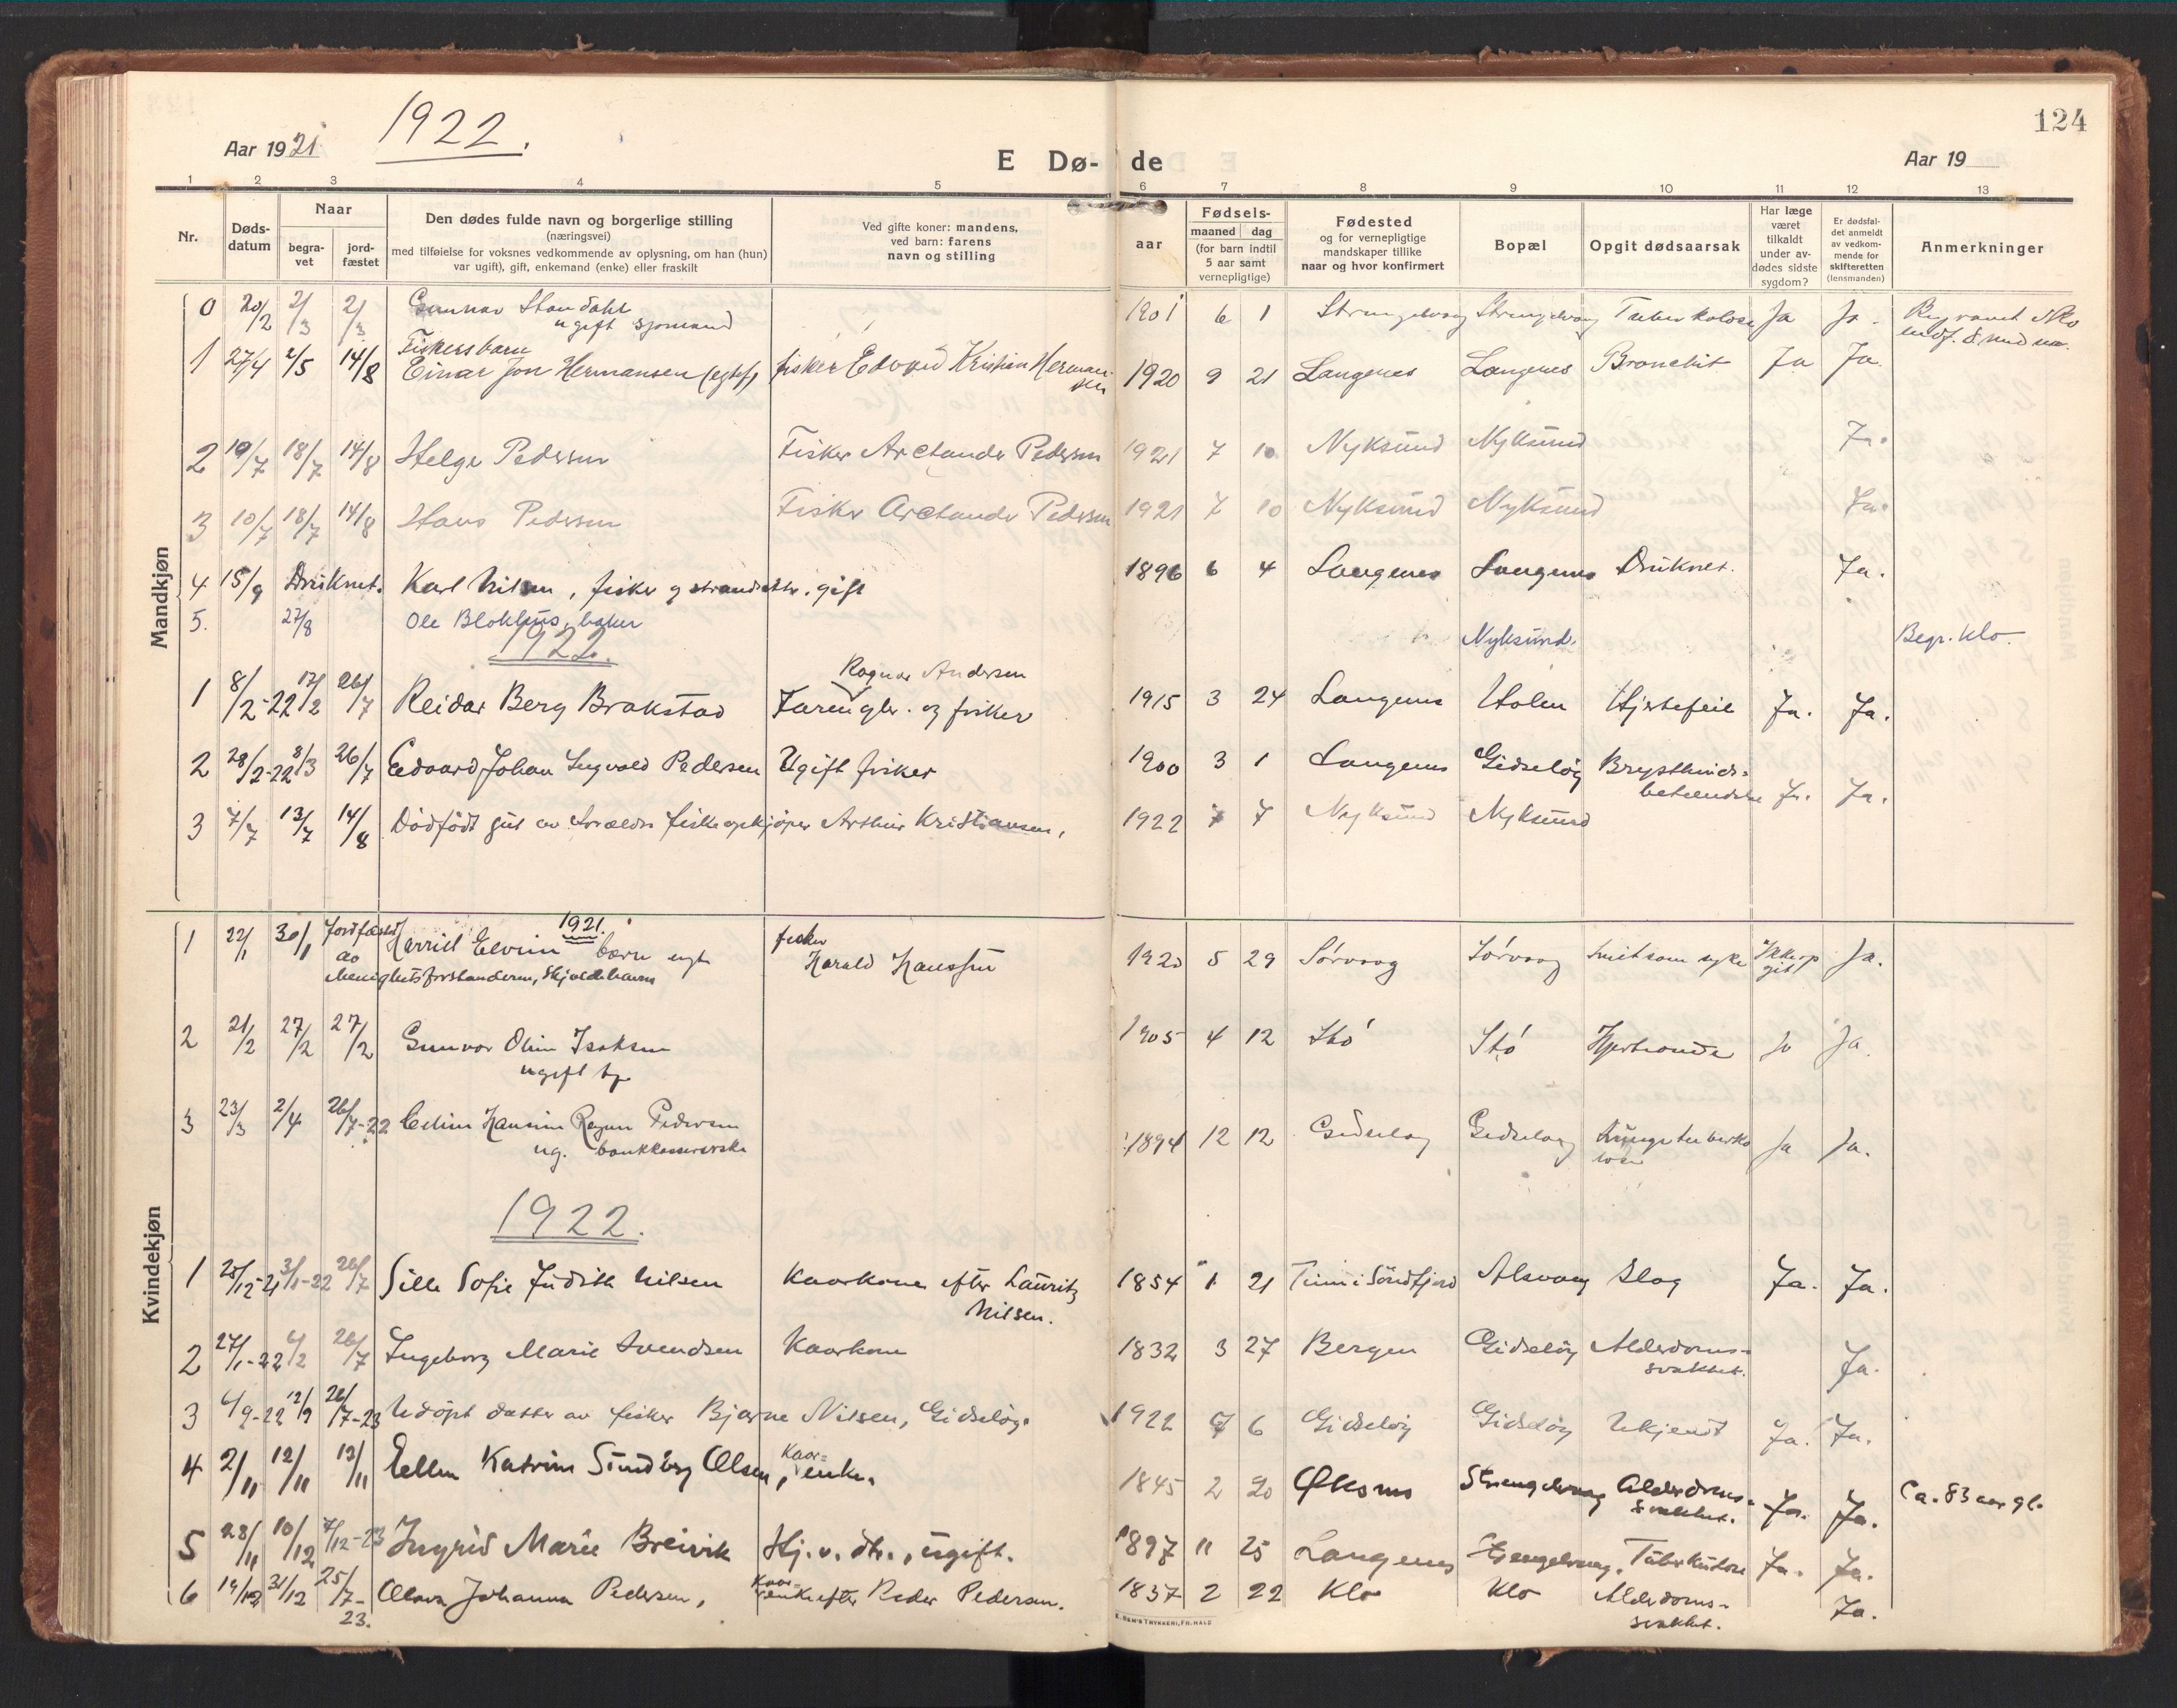 124
Aar 1921
1922.
E Dø-
de
Aar 19
1 2 3 4 5 6 7 8 9 10 11 12 13
Nr.
Døds-
datum
Naar
begra-
vet
jord-
fæstet
Den dødes fulde navn og borgerlige stilling
(næringsvei)
med tilføielse for voksnes vedkommende av oplysning, om han (hun)
var ugift), gift, enkemand (enke) eller fraskilt
Ved gifte koner: mandens,
ved barn: farens
navn og stilling
aar
Fødsels-
maaned dag
(for barn indtil
5 aar samt
vernepligtige)
Fødested
og for vernepligtige
mandskaper tillike
naar og hvor konfirmert
Bopæl
Opgit dødsaarsak
Har læge
været
tilkaldt
under av-
dødes sidste
sygdom?
Er dødsfal-
det anmeldt
av vedkom-
mende for
skifteretten
(lensmanden)
Anmerkninger
Mandkjøn
0 20/2 2/3 2/3 Gunnar 1901 6 1 Ja Ja.
ugift sjömand
Fiskersbarn
1 27/4 2/5 14/8 Einar Jon Hermansen fisker Edvard Kristian Herman- 1920 9 21 Langenes Langenes Bronchit Ja Ja.
sen
2 19/7 18/7 14/8 Helge Pedersen Fisker Arctander Pedersen 1921 7 10 Nyksund Nyksund Ja.
3 10/7 18/7 14/8 Hans Pedersen Fisker Arctander Pedersen 1921 7 10 Nyksund Nyksund Ja.
4 15/9 Druknet. Karl Nilsen, fisker og gift 1896 6 4 Langenes Langenes Druknet. Ja.
5. 27/8 Ole Blokhus, baker Nyksund. Begr. Klo.
1922.
Ragnar Andersen
1 8/2-22 17/2 26/7 Reidar Berg Brakstad og fisker 1915 3 24 Langenes Holen Hjertefeil Ja. Ja.
2 28/2-22 8/3 26/7 Edvard Johan Ingvald Pedersen Ugift fisker 1900 3 1 Langenes Gidsløy Brysthinde-
betændelse Ja. Ja.
3 7/7 13/7 14/8 Dödfödt gut av fiskeopkjöper Arthur Kristiansen, 1922 7 7 Nyksund Nyksund
Kvindekjøn
1921.
1 22/1 30/1 Jordfæstet Elvine barn fisker 1920 5 29 Sørvaag Sørvaag Ja.
av Harald Hanssen
Menighetsforstanderen,
2 21/2 27/2 27/2 Gunvor Isaksen 1905 4 12 Stö Stö Ja Ja.
ugift
3 23/3 2/4 26/7-22 Hansine Pedersen 1894 12 12 Gidsløy Gidsløy Lungetuberku- Ja Ja.
ug.
1922.
1 28/12-21 3/1-22 26/7 Sille Sofie Judith Nilsen Kaarkone efter Lauritz 1854 1 21 Alsvaag Slag Ja. Ja.
Nilsen.
2 27/1-22 26/7 Ingeborg Marie Svendsen Kaarkone 1832 3 27 Bergen Gidsløy Alderdoms-
svakhet. Ja.
3 6/9-22 12/9 26/7-23 Udöpt datter av fisker Bjarne Nilsen, Gidslöy. 1922 6 Gidslöy Gidslöy Ukjendt Ja. Ja.
4 2/11 12/11 13/11 Ellen Katrine Sundberg Olsen, Kaar-
enke. 1845 2 20 Øksnes Strengelvaag Alderdoms-
svakhet. Ja. Ja. Ca. 83 aar gl.
5 28/11 10/12 7/12-23 Ingrid Marie Breivik Hj.v. dtr., ugift. 1897 11 25 Langenes Strengelvaag. Tuberkulose Ja. Ja.
6 19/12 31/12 25/7-
23. Olava Johanna Pedersen, Kaar-
enke efter Peder Pedersen. 1837 2 22 Klo Klo Alderdoms-
svakhet. Ja.
TRYKKERI, FR.HALD